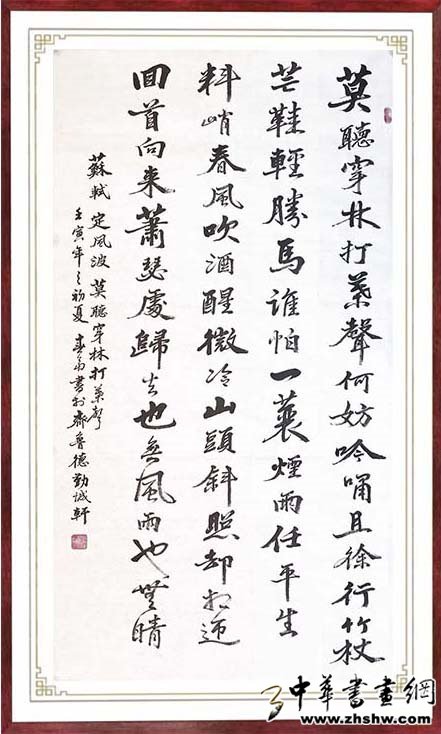 莫聽穿林打葉聲何妨吟嘯且徐行竹杖
芒鞋輕勝馬誰怕一蓑煙雨任平生
料峭春風吹酒醒微冷山頭斜照却相迎
回首向来蕭瑟處歸去也無風雨也無晴
蘇軾 定風波 莫聽穿林打葉聲
壬寅年之初夏 春書於齊魯德勤誠軒
中華書畫網
www.zhshw.com